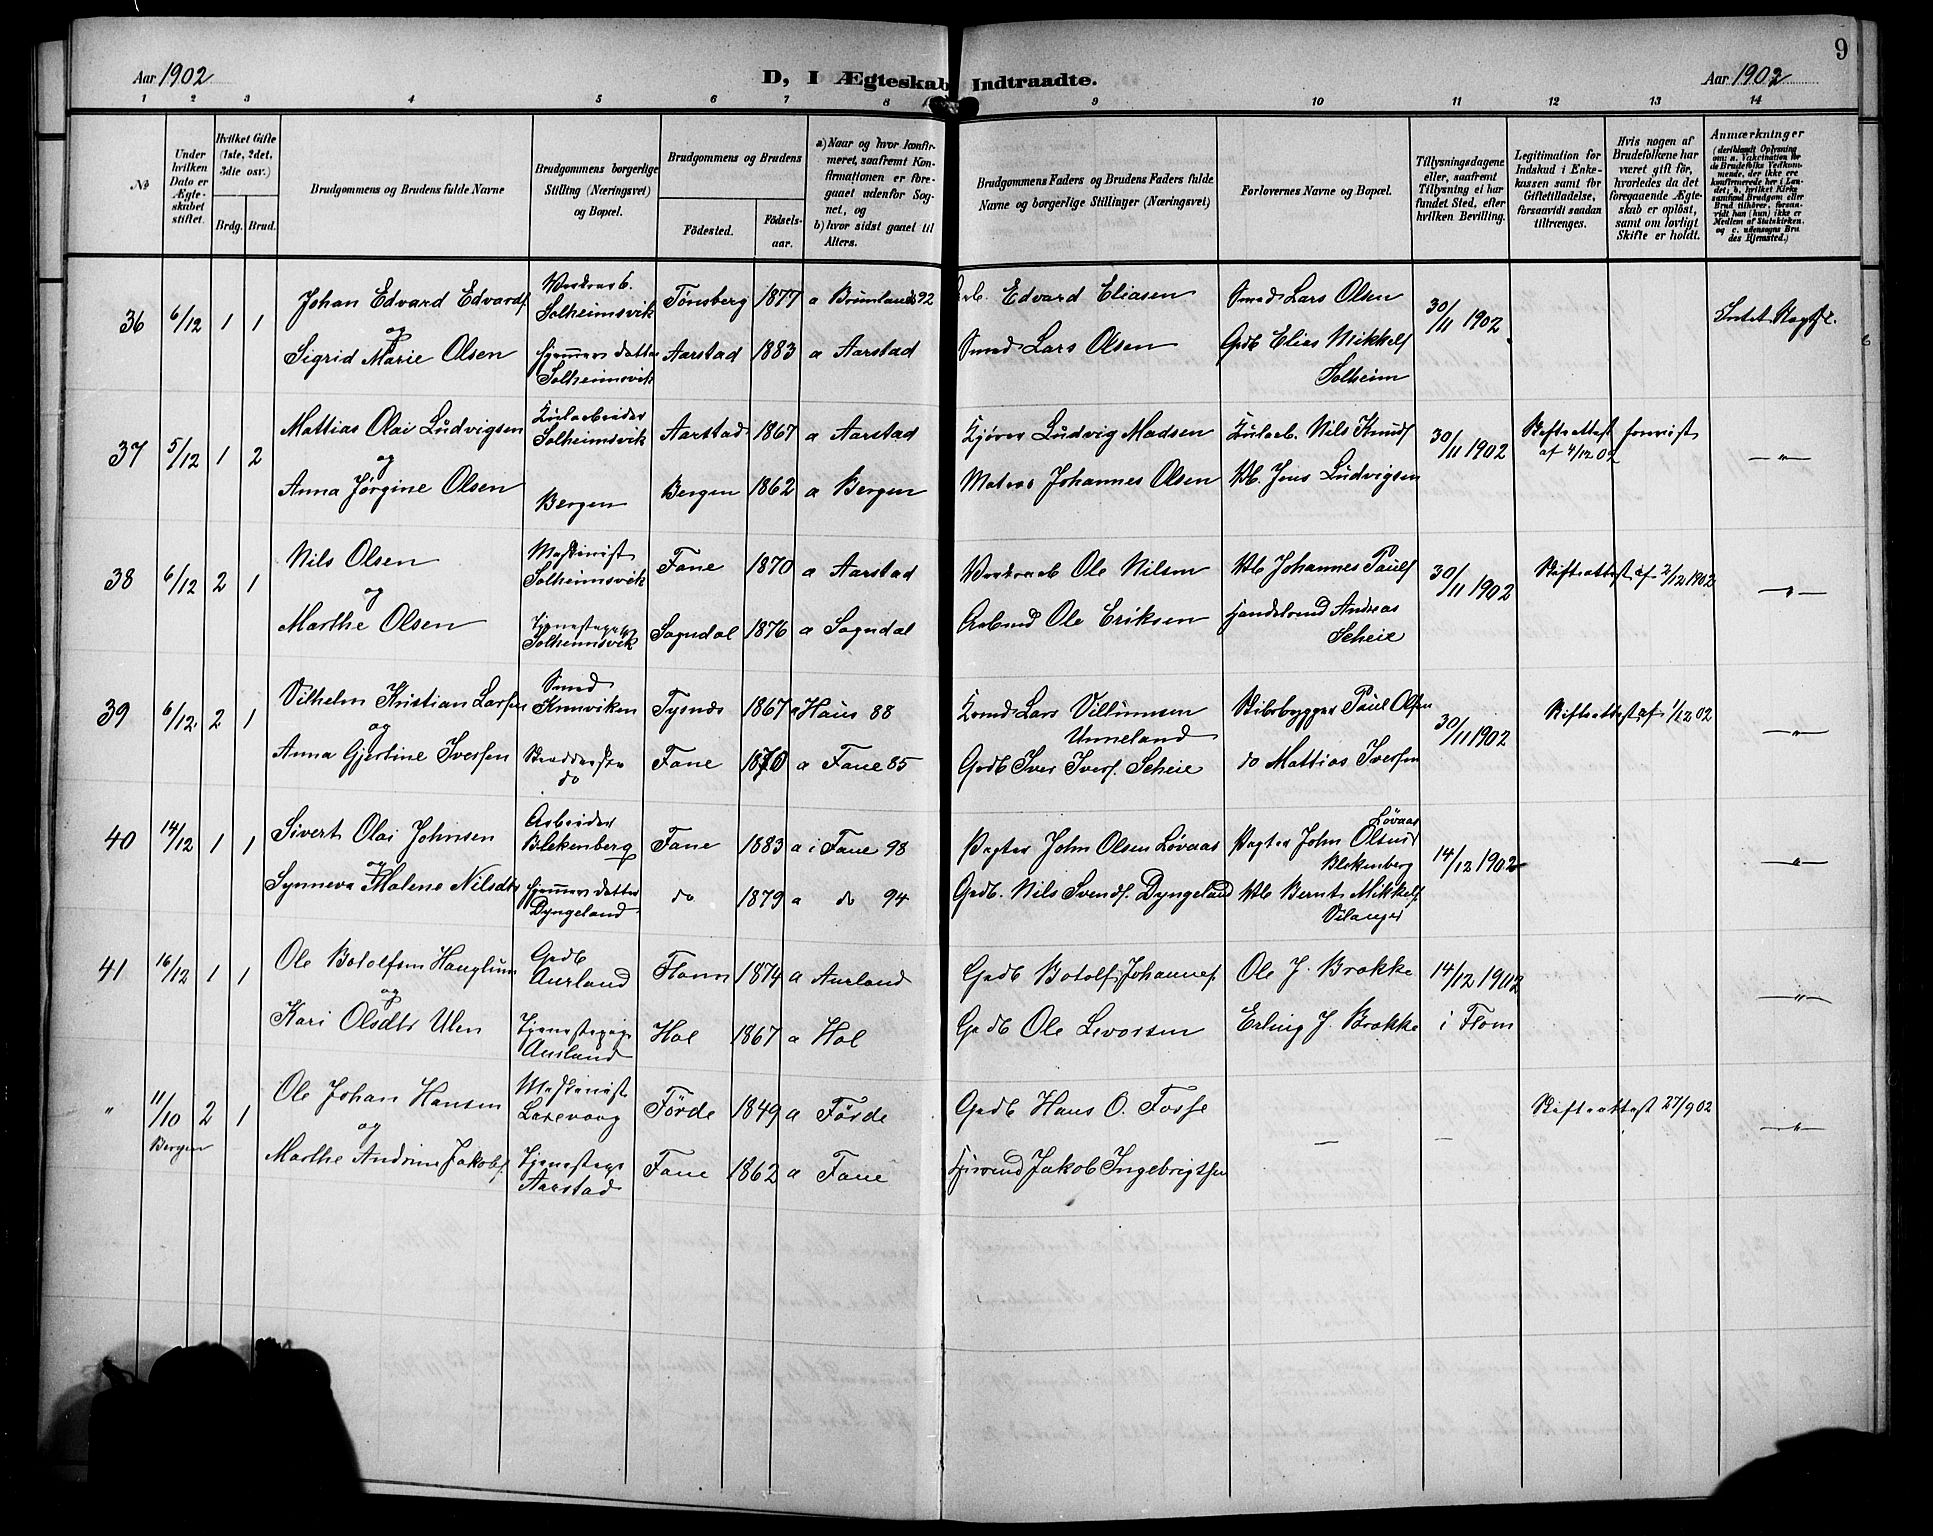 9
Aar 1902
D, I Ægteskab Indtraadte.
Aar 1902
1 2 3 4 5 6 7 8 9 10 11 12 13 14
No
Under hvilken Dato er Ægteskabet stiftet.
Hvilket Gifte (1ste, 2det, 3die osv.)
Brdg. Brud.
Brudgommens og Brudens fulde Navne
Brudgommens borgerlige Stilling (Næringsvei) og Bopæl.
Brudgommens og Brudens
Fødested.
Fødselsaar.
a) Naar og hvor konfirmeret, saafremt Konfirmationen er foregaaet udenfor Sognet, og
b) hvor sidst gaaet til Alters.
Brudgommens Faders og Brudens Faders fulde Navne og borgerlige Stillinger (Næringsvei)
Forlovernes Navne og Bopæl.
Tillysningsdagene eller, saafremt Tillysning ei har fundet Sted, efter hvilken Bevilling.
Legitimation for Indskud i Enkekassen samt for Giftetilladelse, forsaavidt saadan tiltrænges.
Hvis nogen af Brudefolkene har været gift før, hvorledes da det foregaaende Ægteskab er opløst, samt om lovligt Skifte er holdt.
Anmærkninger
(deriblandt Oplysning om: a. Vakcination for de Brudefolks Vedkommende, der ikke ere konfirmerede her i Landet, b. hvilket Kirkesamfund Brudgom eller Brud tilhører, forsaavidt han (hun) ikke er Medlem af Statskirken, og c. udensogns Brudes Hjemsted.)
36 6/12 1 1 Johan Edvard Edvards. Solheimsvik Tønsberg 1877 a 92 Edvard Eliasen Smed Lars Olsen 30/11 1902 Intet
og
Sigrid Marie Olsen Hjemmev. Datter Solheimsvik Aarstad 1883 a Aarstad Smed Lars Olsen Gdb Elias Mikkels. Solheim
37 5/12 1 2 Mattias Olai Ludvigsen Kularbeider Solheimsvik Aarstad 1867 a Aarstad Kjører Ludvig Madsen Kularb. Nils Knuds. 30/11 1902 Skifteattest forevist af 4/12 02 — " —
og
Anna Jørgine Olsen Bergen Bergen 1862 a Bergen Matros Johannes Olsen Jens Ludvigsen
38 6/12 2 1 Nils Olsen Maskinist Solheimsvik Fane 1870 a Aarstad Ole Nilsen Johannes Pauls. 30/11 1902 Skifteattest af 2/12 1902 — " —
og
Marthe Olsen Tjenestepige Solheimsvik Sogndal 1876 a Sogndal Ole Eriksen Handelsmd Andreas Scheie
39 6/12 2 1 Vilhelm Kristian Larsen Smed Tysnæs 1867 a Haus 88 Lars Villumsen Unneland Skibsbygger Paul Olsen 30/11 1902 Skifteattest af 1/12 02 — " —
og
Anna Gjertine Iversen do Fane 1870 a Fane 85 Gdb Iver Ivers. Scheie do Mattias Iversen
40 14/12 1 1 Sivert Olai Johnsen Arbeider Blekenberg Fane 1883 a i Fane 98 Pagter John Olsen Løvaas Pagter John Olsen Løvaas Blekenberg 14/12 1902 — " —
og
Synneva Malene Nilsdtr Hjemmev. Datter Dyngeland do 1879 a do 94 Gdb. Nils Svends. Dyngeland Bernt Mikkels.
41 16/12 1 1 Ole Botolfsen Gdb Aurland Flaam 1874 a Aurland Gdb Botolf Johannes. Ole J. Brække 14/12 1902 — " —
og
Kari Olsdtr Ulen Tjenestepige Aurland Hol 1867 a Hol Gdb Ole Levorsen Erling J. Brække i Flom
" 11/10 Bergen 2 1 Ole Johan Hansen Maskinist Laxevaag Førde 1849 a Førde Gdb Hans O. Fosse — — Skifteattest 27/9 02 — " —
og
Marthe Andrine Jakobs. Tjenestepige Aarstad Fane 1862 a Fane Jakob Ingebrigtsen